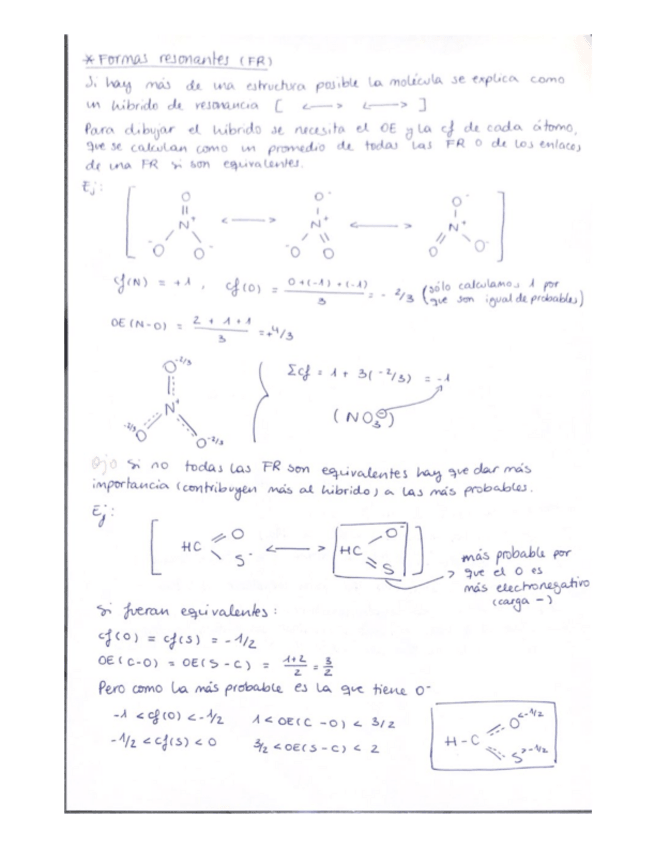 * Formas resonantes (FR)
Si hay más de una estructura posible la molécula se explica como
un híbrido de resonancia [ <—> <—> ]
Para dibujar el híbrido se necesita el OE y la cf de cada átomo,
que se calculan como un promedio de todas las FR o de los enlaces
de una FR si son equivalentes.
Ej:
O O⁻ O⁻
N⁺ <—> N⁺ <—> N⁺
⁻O O⁻ ⁻O O O O⁻
cf(N) = +1, cf(O) = 0+(-1)+(-1)/3 = -2/3 (sólo calculamos 1 por
que son igual de probables)
OE(N-O) = 2+1+1/3 = +4/3
O-2/3
N⁺
-2/3 O O-2/3
Σcf = 1 + 3(-2/3) = -1
(NO₃⊖)
Ojo Si no todas las FR son equivalentes hay que dar más
importancia (contribuyen más al híbrido) a las más probables.
Ej:
HC O S⁻ <—> HC O⁻ S
más probable por
que el O es
más electronegativo
(carga -)
Si fueran equivalentes:
cf(O) = cf(S) = -1/2
OE(C-O) = OE(S-C) = 1+2/2 = 3/2
Pero como la más probable es la que tiene O⁻
-1 < cf(O) < -1/2 1 < OE(C-O) < 3/2
-1/2 < cf(S) < 0 3/2 < OE(S-C) < 2
H-C O<-1/2 S>-1/2